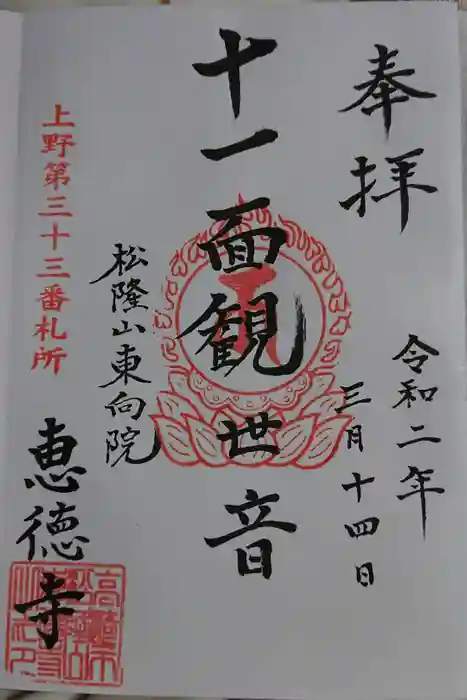 奉拝
令和二年
三月十四日
十一面観世音
松隆山東向院
上野第三十三番札所
恵徳寺